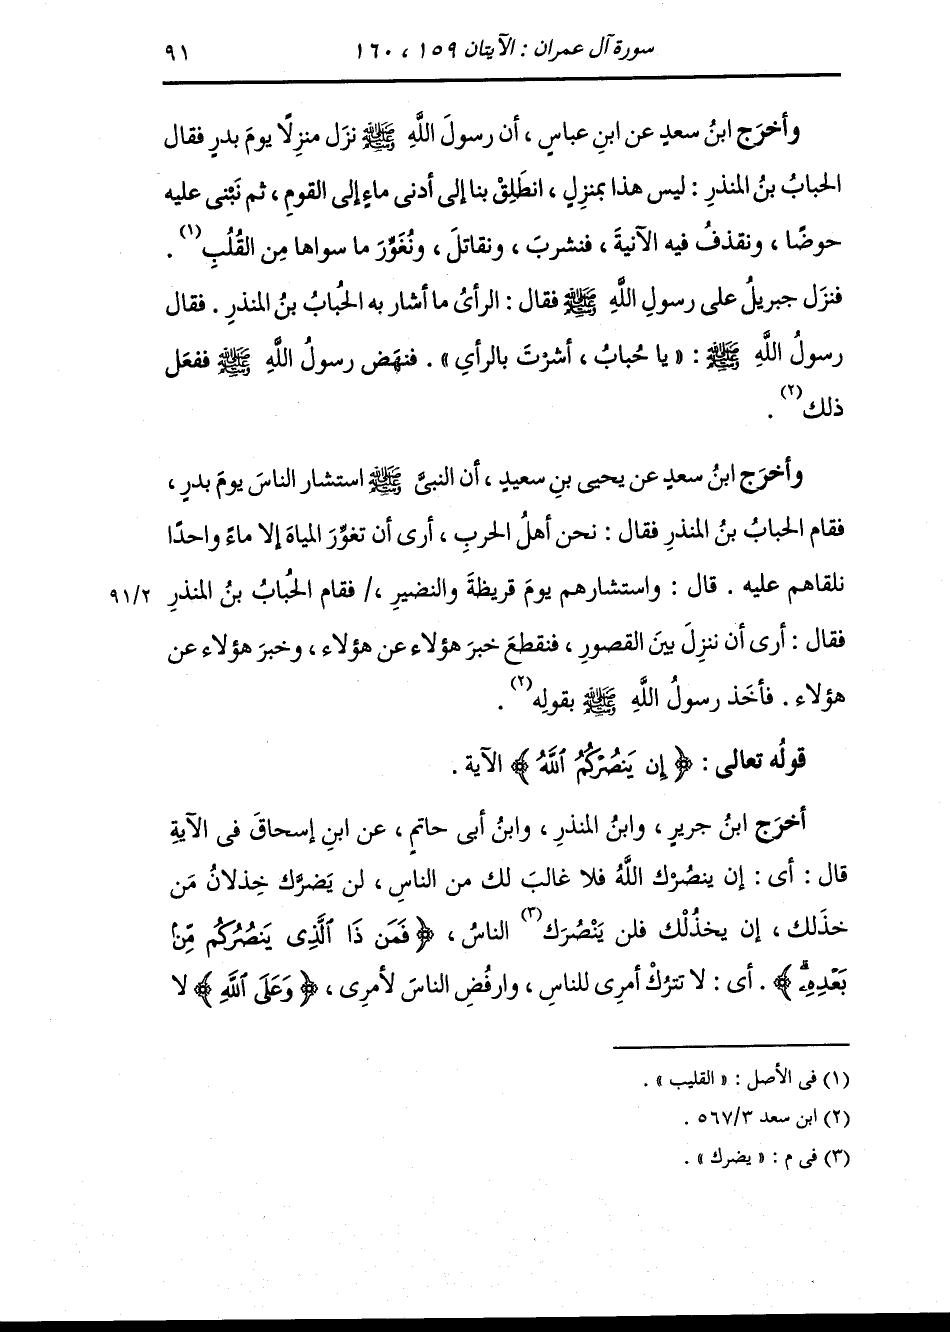 سورة آل عمران : الآيتان ١٥٩ ، ١٦٠ ٩١
وأخرَج ابنُ سعدٍ عن ابنِ عباسٍ ، أن رسولَ اللَّهِ ﷺ نزَل منزِلًا يومَ بدرٍ فقال
الحبابُ بنُ المنذرِ : ليس هذا بمنزِلٍ ، انطَلِقْ بنا إلى أدنى ماءٍ إلى القومِ ، ثم نَبْنى عليه
حوضًا ، ونقذفُ فيه الآنيةَ ، فنشربَ ، ونقاتلَ ، ونُغَوِّرَ ما سواها مِن القُلُبِ(١) .
فنزَل جبريلُ على رسولِ اللَّهِ ﷺ فقال : الرأىُ ما أشار به الحُبابُ بنُ المنذرِ . فقال
رسولُ اللَّهِ ﷺ : « يا حُبابُ ، أشرْتَ بالرأيِ » . فنهَض رسولُ اللَّهِ ﷺ ففعَل
ذلك(٢) .
وأخرَج ابنُ سعدٍ عن يحيى بنِ سعيدٍ ، أن النبىَّ ﷺ استشار الناسَ يومَ بدرٍ ،
فقام الحبابُ بنُ المنذرِ فقال : نحن أهلُ الحربِ ، أرى أن تغوِّرَ المياهَ إلا ماءً واحدًا
نلقاهم عليه . قال : واستشارهم يومَ قريظةَ والنضيرِ ،/ فقام الحُبابُ بنُ المنذرِ ٩١/٢
فقال : أرى أن ننزِلَ بينَ القصورِ ، فنقطعَ خبرَ هؤلاء عن هؤلاء ، وخبرَ هؤلاء عن
هؤلاء . فأخَذ رسولُ اللَّهِ ﷺ بقولِه(٢) .
قولُه تعالى : ﴿ إِن يَنصُرْكُمُ ٱللَّهُ ﴾ الآية .
أخرَج ابنُ جريرٍ ، وابنُ المنذرِ ، وابنُ أبى حاتمٍ ، عن ابنِ إسحاقَ فى الآيةِ
قال : أى : إن ينصُرْك اللَّهُ فلا غالبَ لك من الناسِ ، لن يَضرَّك خِذلانُ مَن
خذَلك ، إن يخذُلْك فلن يَنْصُرَك(٣) الناسُ ، ﴿ فَمَن ذَا ٱلَّذِى يَنصُرُكُم مِّنۢ
بَعْدِهِۦۗ ﴾ . أى : لا تترُكْ أمرِى للناسِ ، وارفُضِ الناسَ لأمرِى ، ﴿ وَعَلَى ٱللَّهِ ﴾ لا
(١) فى الأصل : « القليب » .
(٢) ابن سعد ٥٦٧/٣ .
(٣) فى م : « يضرك » .